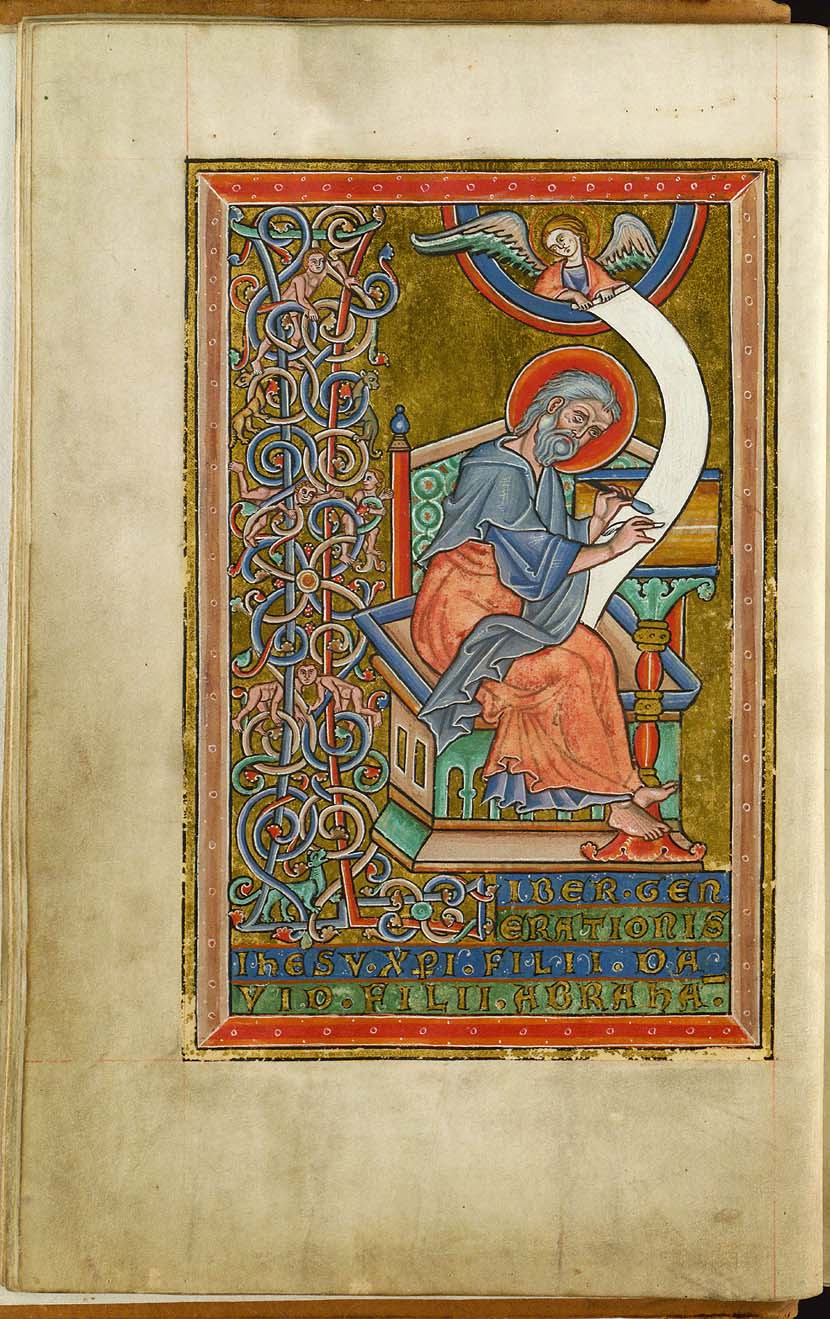 LIBER·GEN
ERATIONIS
IHESV·XPI·FILII·DA
VID·FILII·ABRAHA̅·